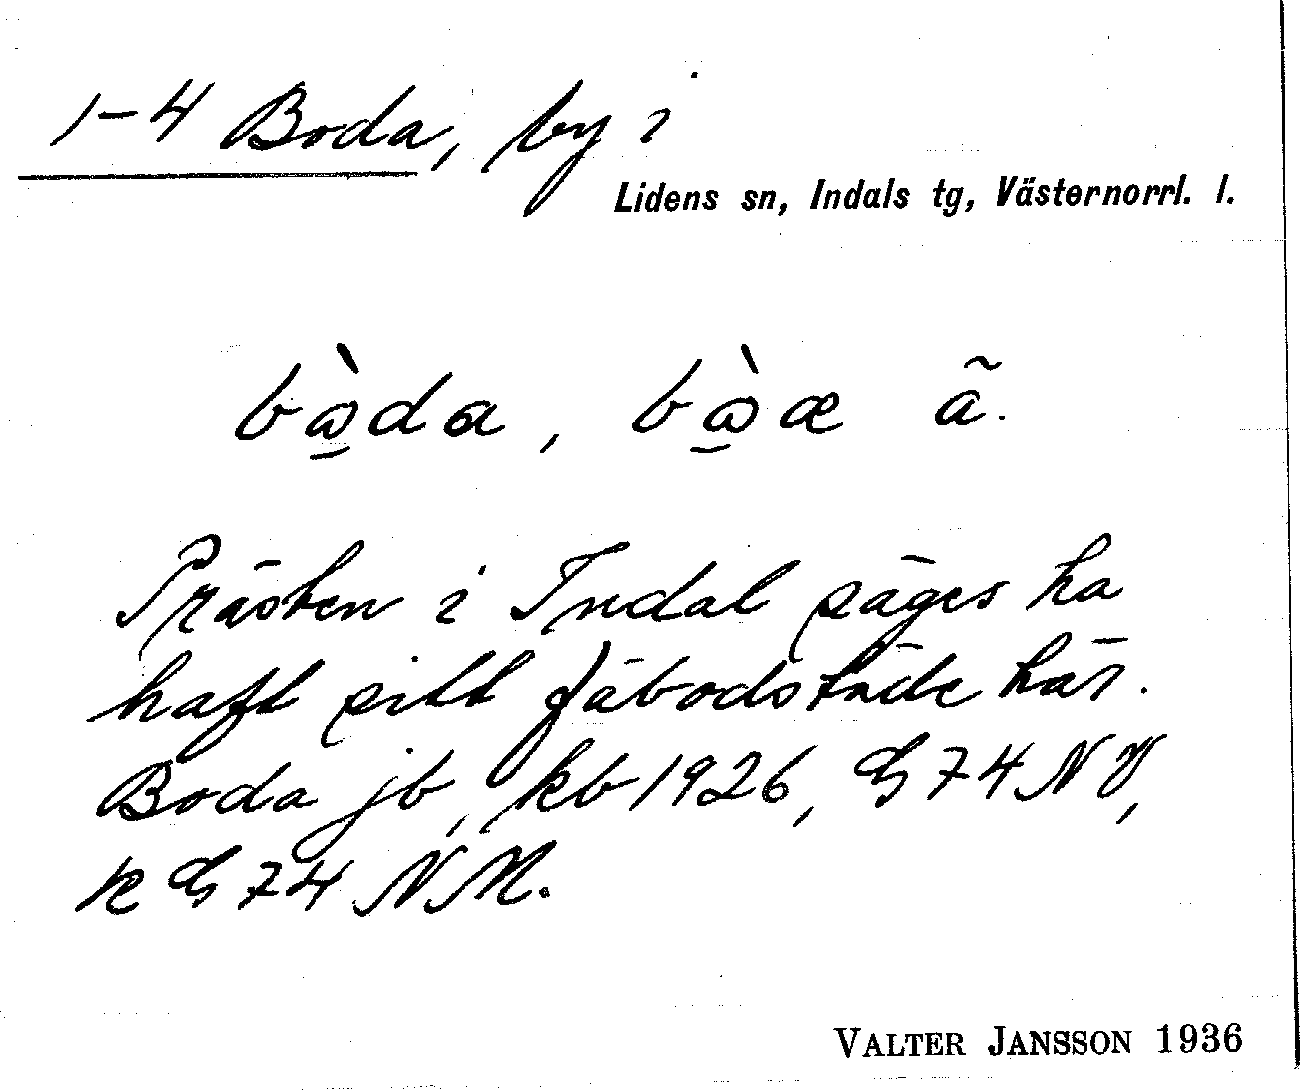 1-4 Boda, by i
Lidens sn, Indals tg, Västernorrl. l.
bàda, bàæ ã.
Prästen i Indal säges ha
haft sitt fäbodställe här.
Boda jb, kb 1926, G 74 NV,
k G 74 NM.
VALTER JANSSON 1936